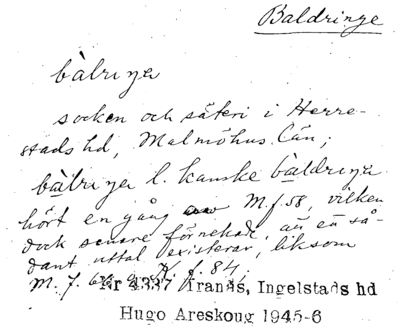 Baldringe
bàlringa
socken och säteri i Herre-
stads hd, Malmöhus Län;
bàlringa l. kanske bàldringa
hört en gång av M. f. 58, vilken
dock senare förnekade, att en så-
dant uttal existerar, liksom
M. f. 69 o. K f. 84;
Nr 4337 Tranås, Ingelstads hd
Hugo Areskoug 1945-6